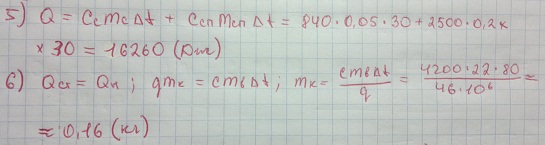 5) Q = CcmcΔt + CспmспΔt = 840·0,05·30 + 2500·0,2×
×30 = 16260 (Дж)
6) Qсг = Qн ; qmк = cmвΔt ; mк = cmвΔt/q = 4200·22·80/46·10⁶ ≈
≈ 0,16 (кг)